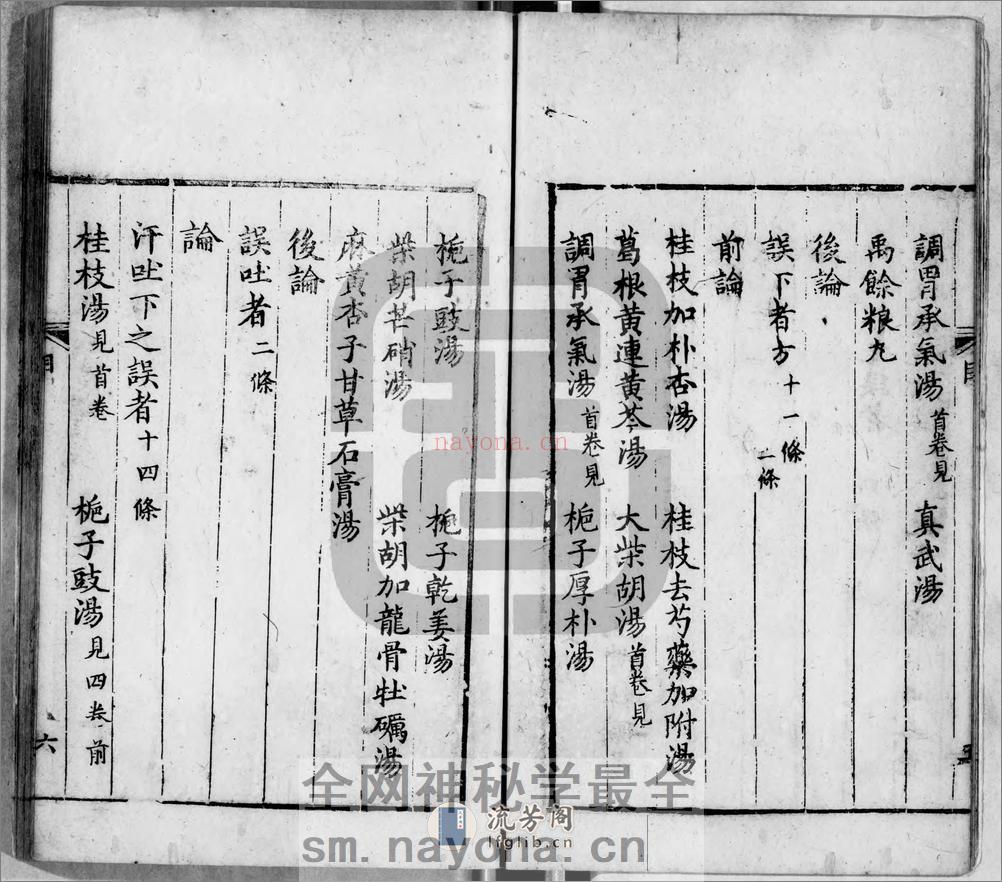 調胃承氣湯 首卷見 真武湯
禹餘粮丸
後論
誤下者方 十一條 二條
前論
桂枝加朴杏湯 桂枝去芍藥加附湯
葛根黃連黃芩湯 大柴胡湯 首卷見
調胃承氣湯 首卷見 梔子厚朴湯
五
梔子豉湯 梔子乾姜湯
柴胡芒硝湯 柴胡加龍骨牡礪湯
麻黃杏子甘草石膏湯
後論
誤吐者 二條
論
汗吐下之誤者 十四條
桂枝湯 見首卷 梔子豉湯 見四卷前
目
六
nayona.cn
全网神秘学最全
流芳阁
lfglib.cn
sm.nayona.cn